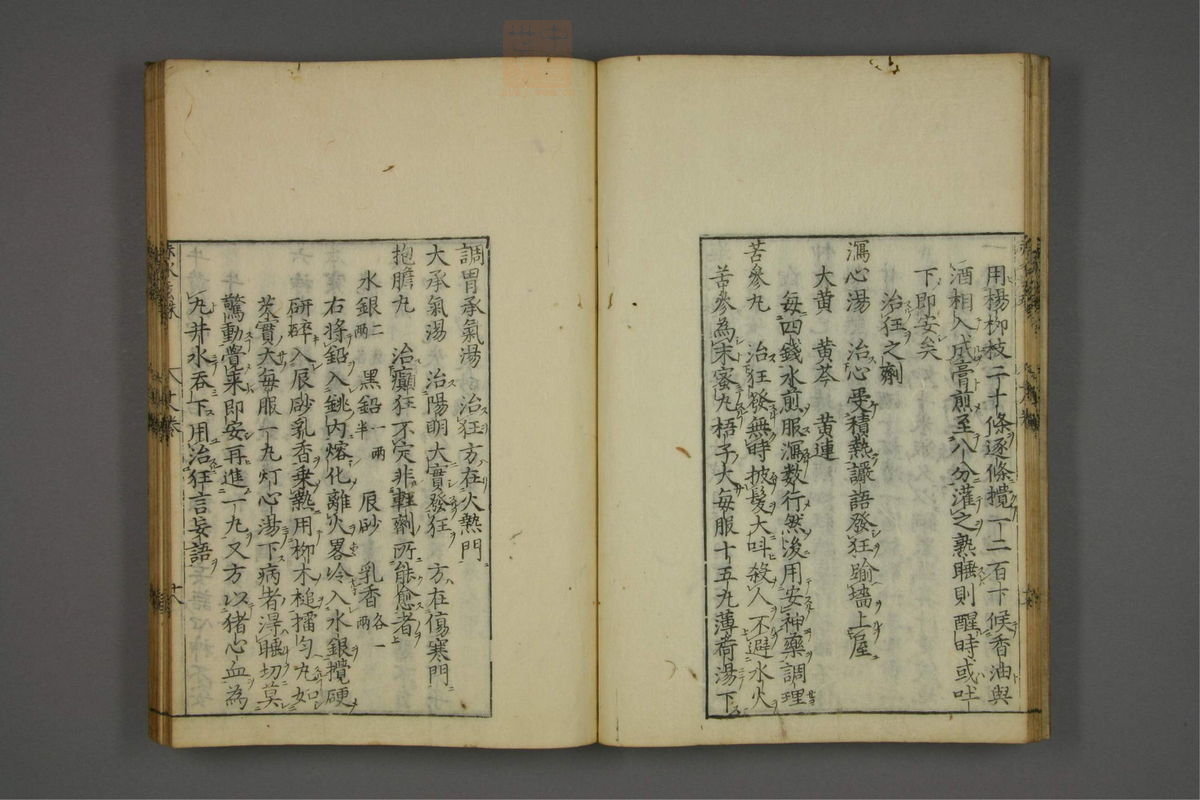 用楊柳枝二十條逐條攪一二百下候香油與
酒相入成膏煎至八分灌之熟睡則醒時或吐
下即安矣
治狂之劑
瀉心湯 治心受積熱譫語發狂踰墻上屋
大黃 黃芩 黃連
每四錢水煎服瀉數行然後用安神藥調理
苦參丸 治狂發無時披髮大叫殺人不避水火
苦參為末蜜丸梧子大每服十五丸薄荷湯下
調胃承氣湯 治狂方在火熱門
大承氣湯 治陽明大實發狂 方在傷寒門
抱膽丸 治癲狂不定非輕劑所能愈者
水銀二兩 黑鉛一兩半 辰砂 乳香各一兩
右將鉛入銚內熔化離火畧冷入水銀攪硬
研碎入辰砂乳香乘熱用柳木槌擂勻丸如
芡實大每服一丸灯心湯下病者得睡切莫
驚動覺來即安再進一丸又方以猪心血為
丸井水吞下用治狂言妄語